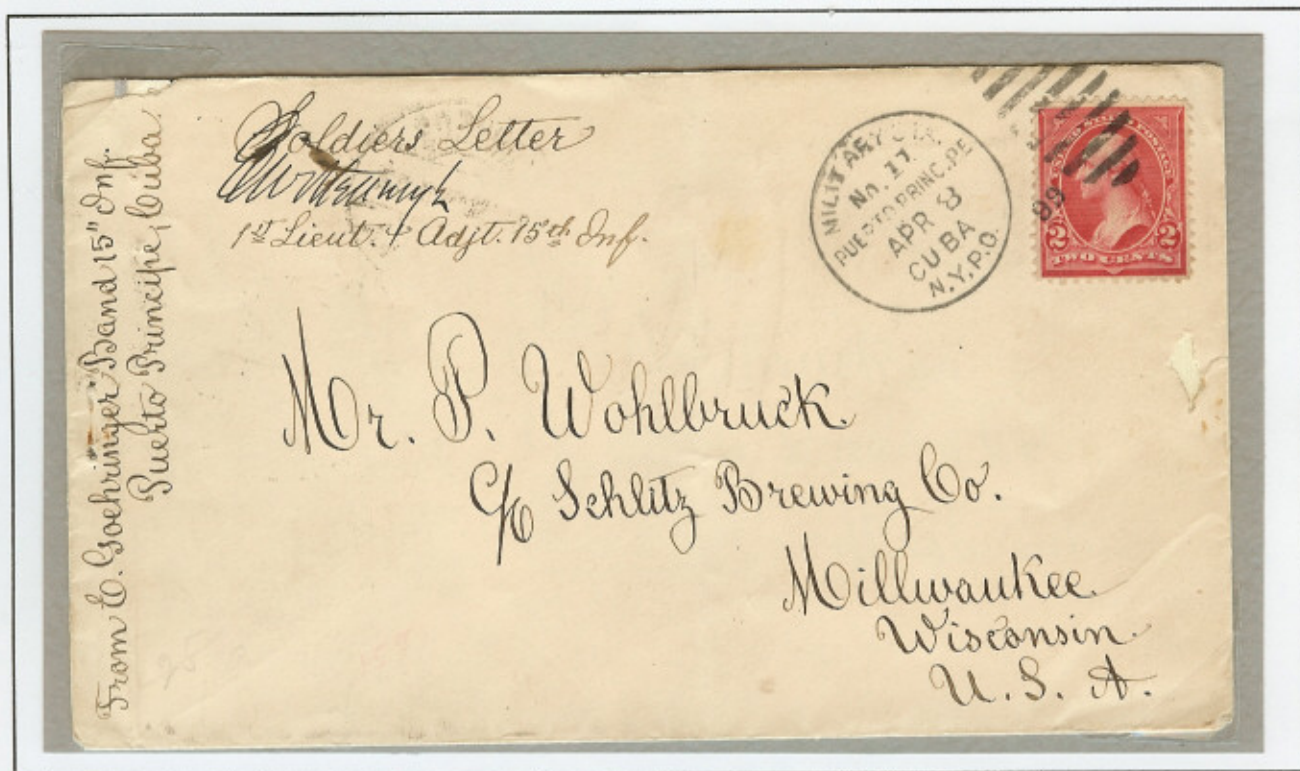 From C. Goehringer Band 15" Inf.
Puerto Principe, Cuba.
Soldiers Letter
1st Lieut. & Adjt. 15th Inf.
MILITARY STA.
No. 17.
PUERTO PRINCIPE
APR 8
99
CUBA
N.Y.P.O.
UNITED STATES POSTAGE
2 2
TWO CENTS
Mr. P. Wohlbruck.
c/o Schlitz Brewing Co.
Millwaukee.
Wisconsin.
U. S. A.